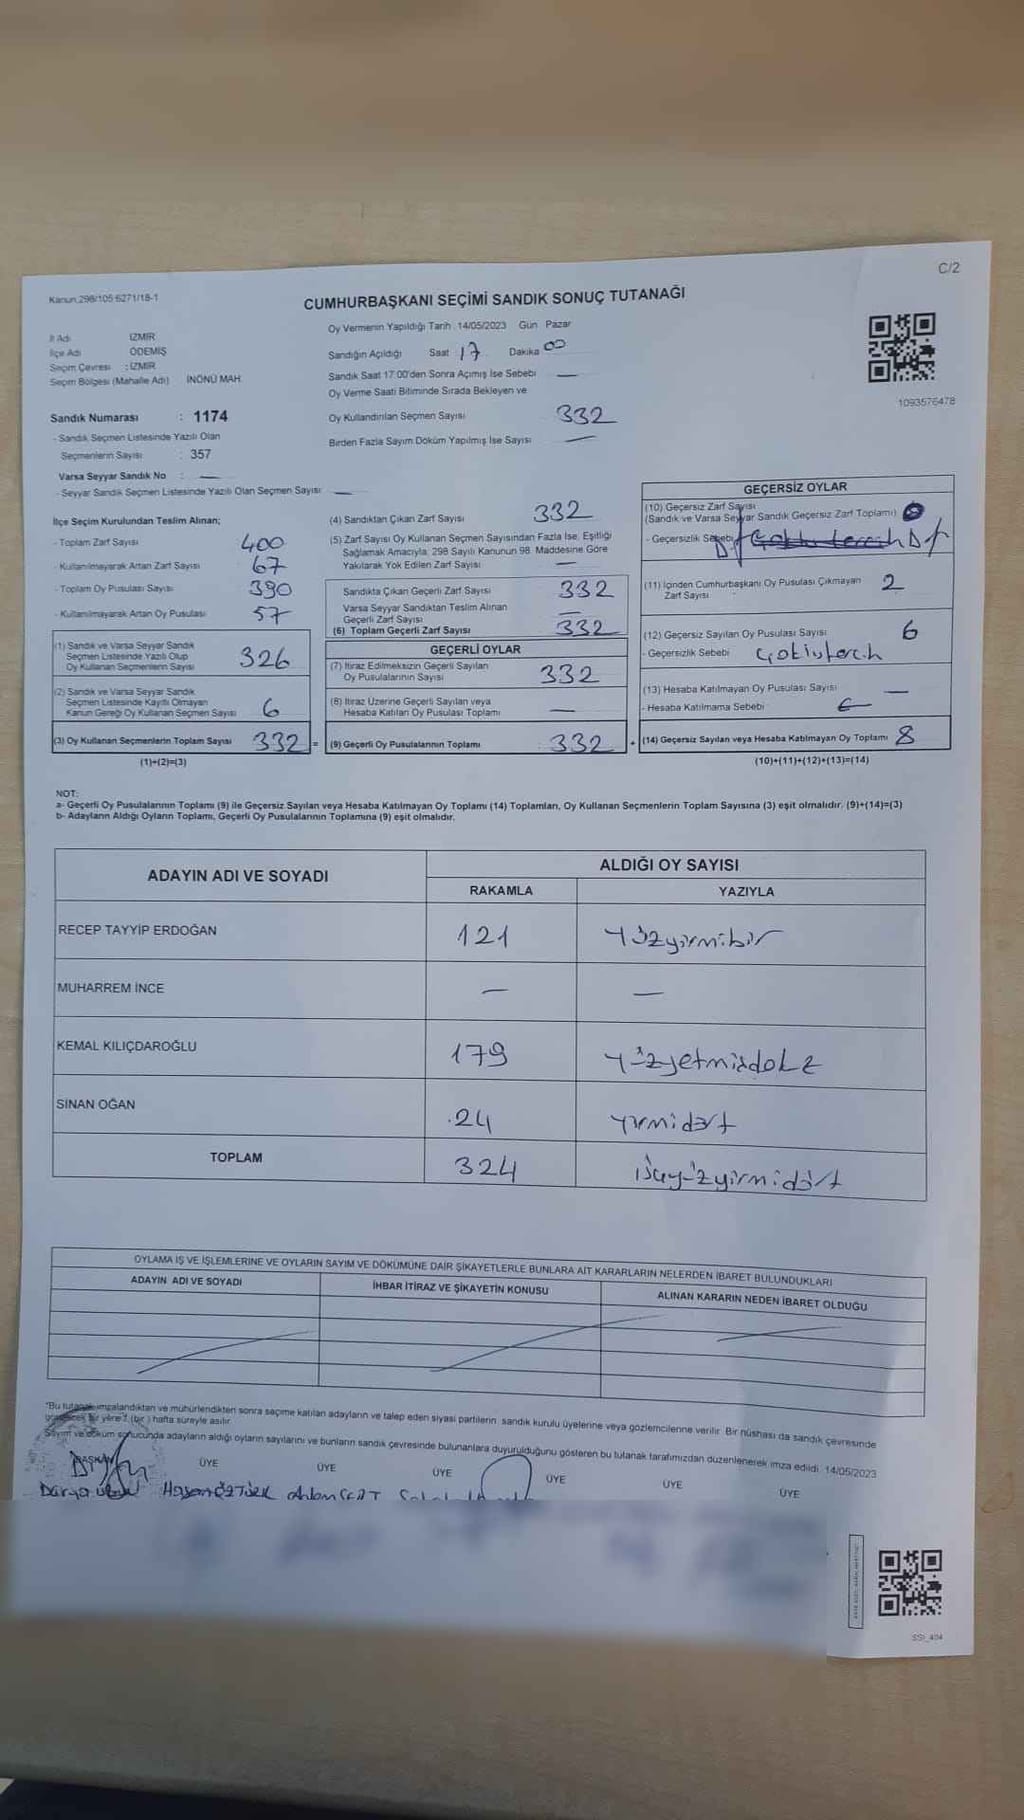 C/2
Kanun 298/105 6271/18-1
CUMHURBAŞKANI SEÇİMİ SANDIK SONUÇ TUTANAĞI
Oy Vermenin Yapıldığı Tarih 14/05/2023 Gün Pazar
İl Adı İZMİR
İlçe Adı ÖDEMİŞ
Seçim Çevresi : İZMİR
Seçim Bölgesi (Mahalle Adı) İNÖNÜ MAH.
Sandığın Açıldığı Saat 17 Dakika 00
Sandık Saat 17:00'den Sonra Açımış İse Sebebi —
Oy Verme Saati Bitiminde Sırada Bekleyen ve
Oy Kullandırılan Seçmen Sayısı 332
Birden Fazla Sayım Döküm Yapılmış İse Sayısı —
1093576478
Sandık Numarası : 1174
- Sandık Seçmen Listesinde Yazılı Olan
Seçmenlerin Sayısı : 357
Varsa Seyyar Sandık No : —
- Seyyar Sandık Seçmen Listesinde Yazılı Olan Seçmen Sayısı —
İlçe Seçim Kurulundan Teslim Alınan;
- Toplam Zarf Sayısı 400
- Kullanılmayarak Artan Zarf Sayısı 67
- Toplam Oy Pusulası Sayısı 390
- Kullanılmayarak Artan Oy Pusulası 57
(1) Sandık ve Varsa Seyyar Sandık
Seçmen Listesinde Yazılı Olup
Oy Kullanan Seçmenlerin Sayısı 326
(2) Sandık ve Varsa Seyyar Sandık
Seçmen Listesinde Kayıtlı Olmayan
Kanun Gereği Oy Kullanan Seçmen Sayısı 6
(3) Oy Kullanan Seçmenlerin Toplam Sayısı 332 =
(1)+(2)=(3)
(4) Sandıktan Çıkan Zarf Sayısı 332
(5) Zarf Sayısı Oy Kullanan Seçmen Sayısından Fazla İse, Eşitliği
Sağlamak Amacıyla, 298 Sayılı Kanunun 98. Maddesine Göre
Yakılarak Yok Edilen Zarf Sayısı —
Sandıkta Çıkan Geçerli Zarf Sayısı 332
Varsa Seyyar Sandıktan Teslim Alınan
Geçerli Zarf Sayısı —
(6) Toplam Geçerli Zarf Sayısı 332
GEÇERLİ OYLAR
(7) İtiraz Edilmeksizin Geçerli Sayılan
Oy Pusulalarının Sayısı 332
(8) İtiraz Üzerine Geçerli Sayılan veya
Hesaba Katılan Oy Pusulası Toplamı —
(9) Geçerli Oy Pusulalarının Toplamı : 332 +
GEÇERSİZ OYLAR
(10) Geçersiz Zarf Sayısı
(Sandık ve Varsa Seyyar Sandık Geçersiz Zarf Toplamı)
- Geçersizlik Sebebi
(11) İçinden Cumhurbaşkanı Oy Pusulası Çıkmayan
Zarf Sayısı 2
(12) Geçersiz Sayılan Oy Pusulası Sayısı 6
- Geçersizlik Sebebi
(13) Hesaba Katılmayan Oy Pusulası Sayısı —
- Hesaba Katılmama Sebebi
(14) Geçersiz Sayılan veya Hesaba Katılmayan Oy Toplamı 8
(10)+(11)+(12)+(13)=(14)
NOT:
a- Geçerli Oy Pusulalarının Toplamı (9) ile Geçersiz Sayılan veya Hesaba Katılmayan Oy Toplamı (14) Toplamları, Oy Kullanan Seçmenlerin Toplam Sayısına (3) eşit olmalıdır. (9)+(14)=(3)
b- Adayların Aldığı Oyların Toplamı, Geçerli Oy Pusulalarının Toplamına (9) eşit olmalıdır.
ADAYIN ADI VE SOYADI
ALDIĞI OY SAYISI
RAKAMLA YAZIYLA
RECEP TAYYİP ERDOĞAN 121 Yüzyirmibir
MUHARREM İNCE — —
KEMAL KILIÇDAROĞLU 179 Yüzyetmişdokz
SİNAN OĞAN .24 Yirmidört
TOPLAM 324 üçyüzyirmidört
OYLAMA İŞ VE İŞLEMLERİNE VE OYLARIN SAYIM VE DÖKÜMÜNE DAİR ŞİKAYETLERLE BUNLARA AİT KARARLARIN NELERDEN İBARET BULUNDUKLARI
ADAYIN ADI VE SOYADI İHBAR İTİRAZ VE ŞİKAYETİN KONUSU ALINAN KARARIN NEDEN İBARET OLDUĞU
*Bu tutanak imzalandıktan ve mühürlendikten sonra seçime katılan adayların ve talep eden siyasi partilerin, sandık kurulu üyelerine veya gözlemcilerine verilir. Bir nüshası da sandık çevresinde
görülecek bir yere 1 (bir ) hafta süreyle asılır.
Sayım ve döküm sonucunda adayların aldığı oyların sayılarını ve bunların sandık çevresinde bulunanlara duyurulduğunu gösteren bu tutanak tarafımızdan düzenlenerek imza edildi. 14/05/2023
BAŞKAN ÜYE ÜYE ÜYE ÜYE ÜYE ÜYE
Derya Hasan ÖZTÜRK
SSI_404